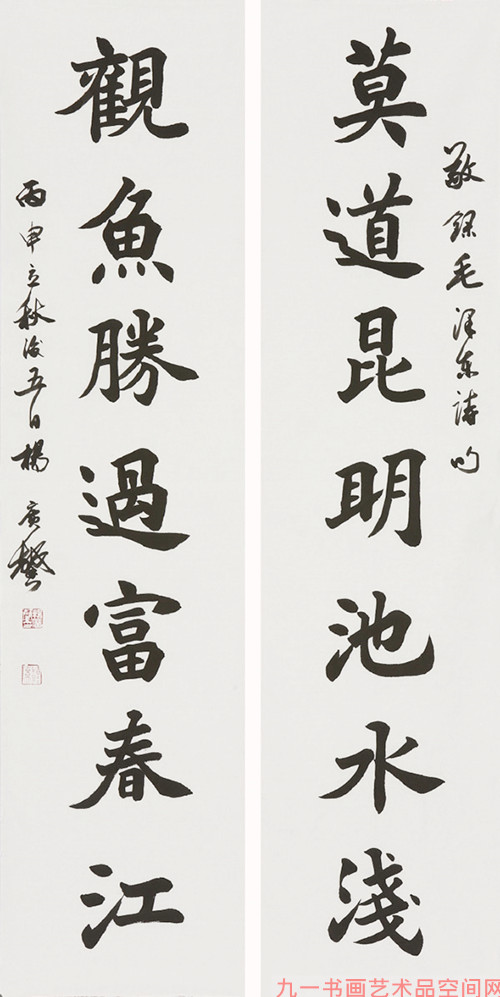 敬録毛澤東詩句
莫道昆明池水淺
觀魚勝過富春江
丙申立秋後五日楊廣馨
九一书画艺术品空间网